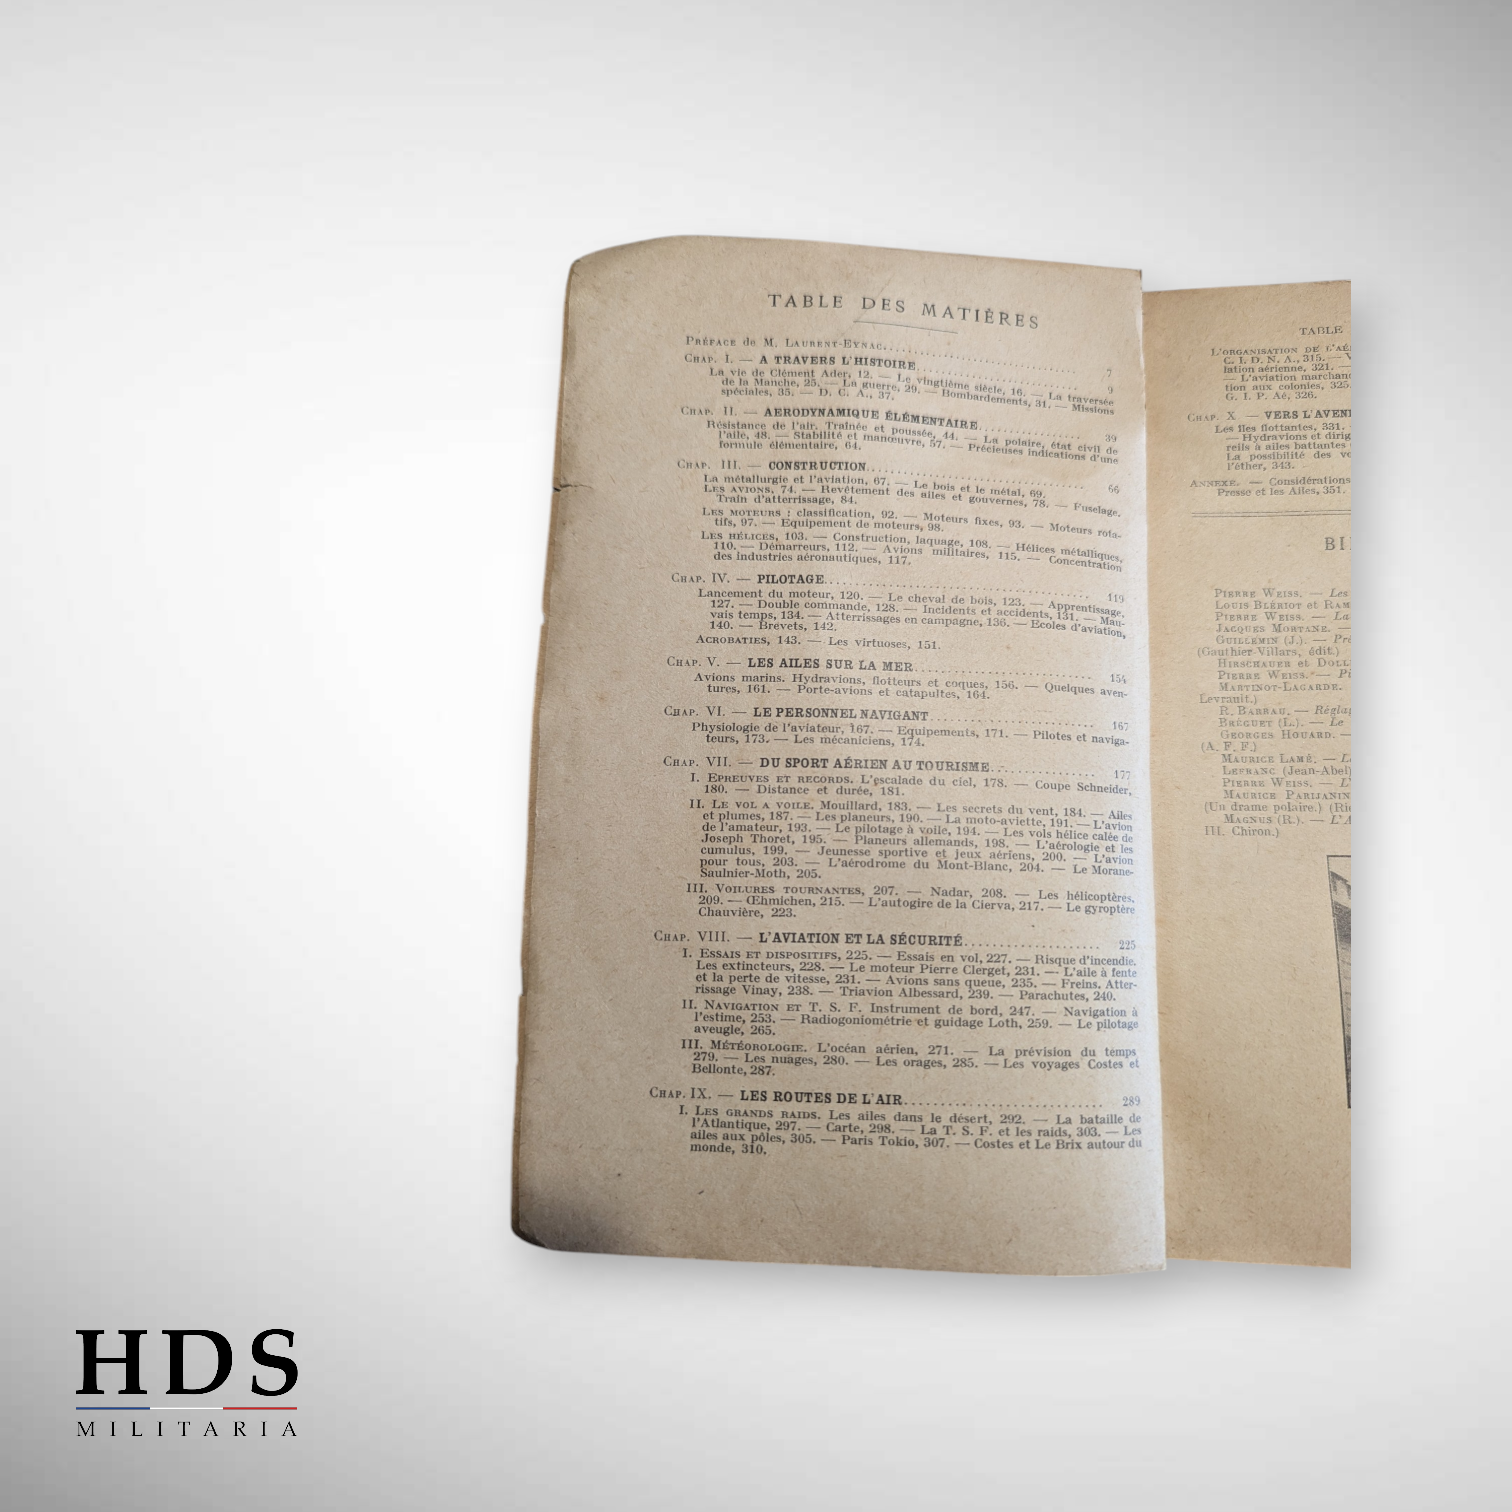 TABLE DES MATIÈRES
PRÉFACE de M. LAURENT-EYNAC.................... 7
CHAP. I. — A TRAVERS L'HISTOIRE.................... 9
La vie de Clément Ader, 12. — Le vingtième siècle, 16. — La traversée
de la Manche, 25. — La guerre, 29. — Bombardements, 31. — Missions
spéciales, 35. — D. C. A., 37.
CHAP. II. — AERODYNAMIQUE ÉLÉMENTAIRE.................... 39
Résistance de l'air. Traînée et poussée, 44. — La polaire, état civil de
l'aile, 48. — Stabilité et manœuvre, 57. — Précieuses indications d'une
formule élémentaire, 64.
CHAP. III. — CONSTRUCTION.................... 66
La métallurgie et l'aviation, 67. — Le bois et le métal, 69.
LES AVIONS, 74. — Revêtement des ailes et gouvernes, 78. — Fuselage.
Train d'atterrissage, 84.
LES MOTEURS : classification, 92. — Moteurs fixes, 93. — Moteurs rota-
tifs, 97. — Equipement de moteurs, 98.
LES HÉLICES, 103. — Construction, laquage, 108. — Hélices métalliques,
110. — Démarreurs, 112. — Avions militaires, 115. — Concentration
des industries aéronautiques, 117.
CHAP. IV. — PILOTAGE.................... 119
Lancement du moteur, 120. — Le cheval de bois, 123. — Apprentissage,
127. — Double commande, 128. — Incidents et accidents, 131. — Mau-
vais temps, 134. — Atterrissages en campagne, 136. — Ecoles d'aviation,
140. — Brevets, 142.
ACROBATIES, 143. — Les virtuoses, 151.
CHAP. V. — LES AILES SUR LA MER.................... 154
Avions marins. Hydravions, flotteurs et coques, 156. — Quelques aven-
tures, 161. — Porte-avions et catapultes, 164.
CHAP. VI. — LE PERSONNEL NAVIGANT.................... 167
Physiologie de l'aviateur, 167. — Equipements, 171. — Pilotes et naviga-
teurs, 173. — Les mécaniciens, 174.
CHAP. VII. — DU SPORT AÉRIEN AU TOURISME.................... 177
I. EPREUVES ET RECORDS. L'escalade du ciel, 178. — Coupe Schneider,
180. — Distance et durée, 181.
II. LE VOL A VOILE. Mouillard, 183. — Les secrets du vent, 184. — Ailes
et plumes, 187. — Les planeurs, 190. — La moto-aviette, 191. — L'avion
de l'amateur, 193. — Le pilotage à voile, 194. — Les vols hélice calée de
Joseph Thoret, 195. — Planeurs allemands, 198. — L'aérologie et les
cumulus, 199. — Jeunesse sportive et jeux aériens, 200. — L'avion
pour tous, 203. — L'aérodrome du Mont-Blanc, 204. — Le Morane-
Saulnier-Moth, 205.
III. VOILURES TOURNANTES, 207. — Nadar, 208. — Les hélicoptères,
209. — Œhmichen, 215. — L'autogire de la Cierva, 217. — Le gyroptère
Chauvière, 223.
CHAP. VIII. — L'AVIATION ET LA SÉCURITÉ.................... 225
I. ESSAIS ET DISPOSITIFS, 225. — Essais en vol, 227. — Risque d'incendie.
Les extincteurs, 228. — Le moteur Pierre Clerget, 231. — L'aile à fente
et la perte de vitesse, 231. — Avions sans queue, 235. — Freins. Atter-
rissage Vinay, 238. — Triavion Albessard, 239. — Parachutes, 240.
II. NAVIGATION ET T. S. F. Instrument de bord, 247. — Navigation à
l'estime, 253. — Radiogoniométrie et guidage Loth, 259. — Le pilotage
aveugle, 265.
III. MÉTÉOROLOGIE. L'océan aérien, 271. — La prévision du temps
279. — Les nuages, 280. — Les orages, 285. — Les voyages Costes et
Bellonte, 287.
CHAP. IX. — LES ROUTES DE L'AIR.................... 289
I. LES GRANDS RAIDS. Les ailes dans le désert, 292. — La bataille de
l'Atlantique, 297. — Carte, 298. — La T. S. F. et les raids, 303. — Les
ailes aux pôles, 305. — Paris Tokio, 307. — Costes et Le Brix autour du
monde, 310.
TABLE
L'ORGANISATION DE L'AÉ
C. I. D. N. A., 315. —
lation aérienne, 321. —
— L'aviation marchan
tion aux colonies, 325.
G. I. P. Aé, 326.
CHAP. X — VERS L'AVENI
Les îles flottantes, 331.
— Hydravions et dirig
reils à ailes battantes
La possibilité des vo
l'éther, 343.
ANNEXE. — Considérations
Presse et les Ailes, 351.
BI
PIERRE WEISS. — Les
LOUIS BLÉRIOT et RAM
PIERRE WEISS. — La
JACQUES MORTANE. —
GUILLEMIN (J.). — Pré
(Gauthier-Villars, édit.)
HIRSCHAUER et DOLL
PIERRE WEISS. — Pi
MARTINOT-LAGARDE.
Levrault.)
R. BARRAU. — Régla
BRÉGUET (L.). — Le
GEORGES HOUARD. —
(A. F. F.)
MAURICE LAMÉ. — L
LEFRANC (Jean-Abel)
PIERRE WEISS. — L'
MAURICE PARIJANIN
(Un drame polaire.) (Ri
MAGNUS (R.). — L'A
III. Chiron.)
HDS
MILITARIA